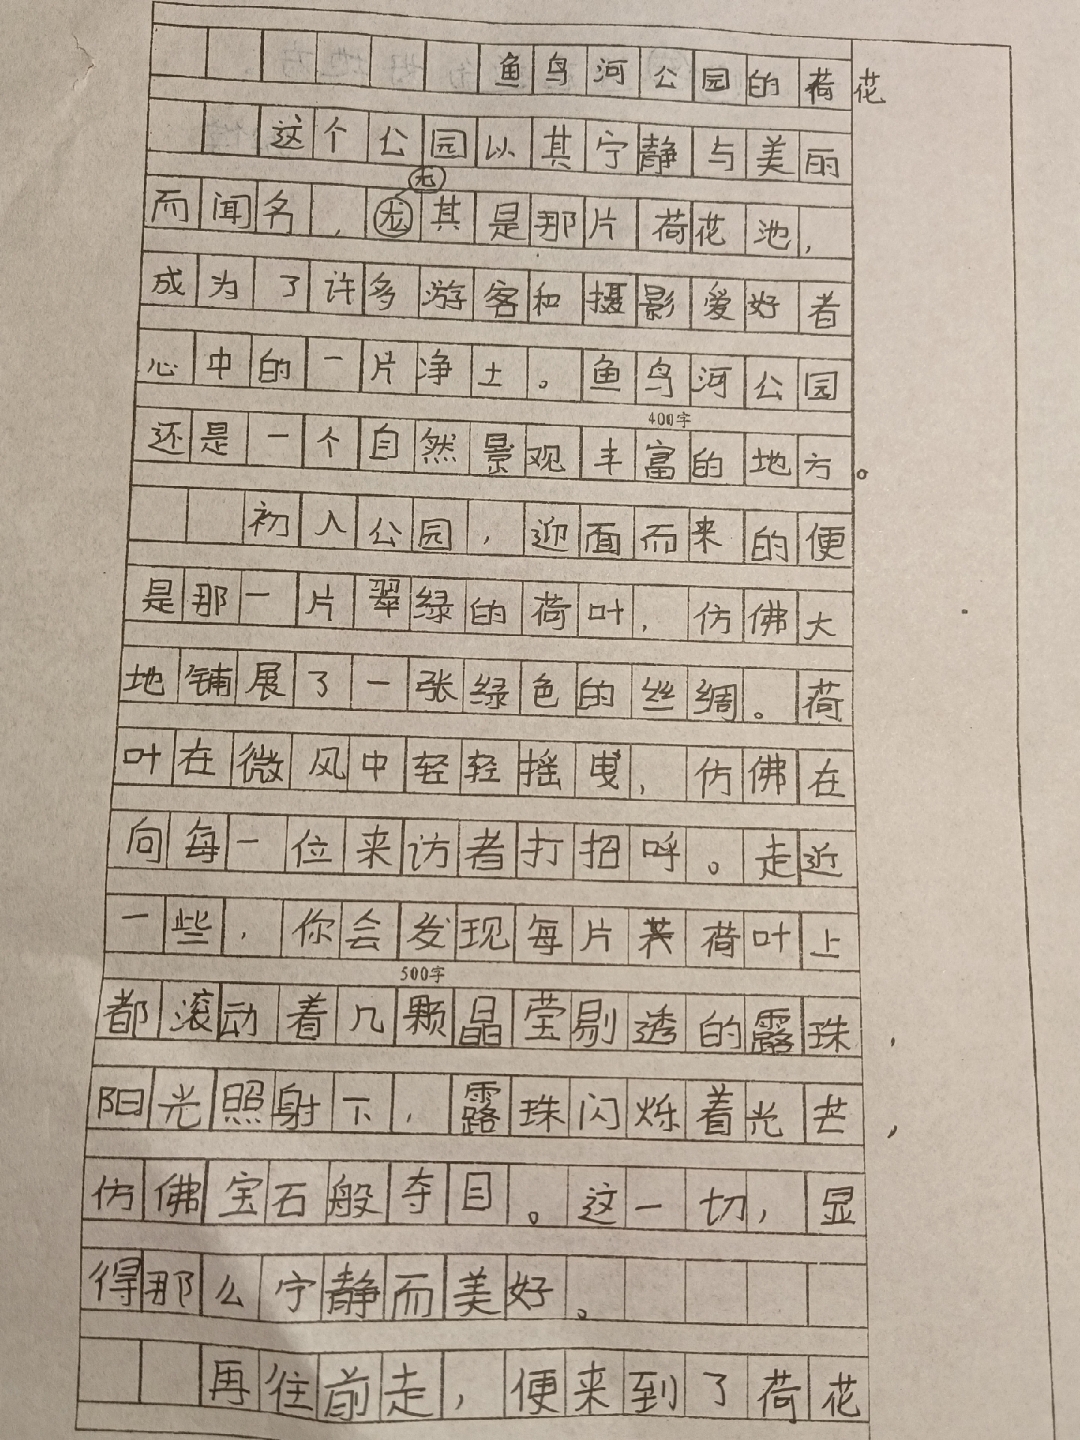 鱼鸟河公园的荷花
这个公园以其宁静与美丽
而闻名，尤其是那片荷花池，
成为了许多游客和摄影爱好者
心中的一片净土。鱼鸟河公园
400字
还是一个自然景观丰富的地方。
初入公园，迎面而来的便
是那一片翠绿的荷叶，仿佛大
地铺展了一张绿色的丝绸。荷
叶在微风中轻轻摇曳，仿佛在
向每一位来访者打招呼。走近
一些，你会发现每片荷叶上
500字
都滚动着几颗晶莹剔透的露珠，
阳光照射下，露珠闪烁着光芒，
仿佛宝石般夺目。这一切，显
得那么宁静而美好。
再往前走，便来到了荷花